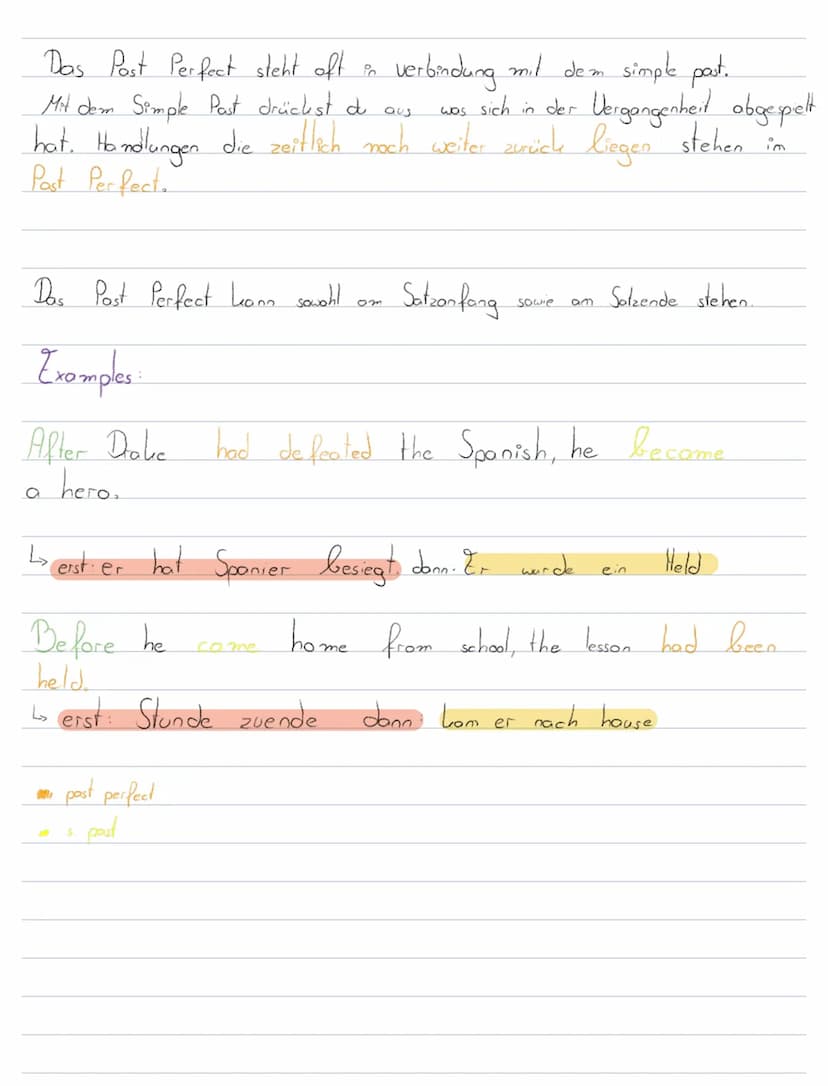 Das Past Perfect steht oft in verbindung mit dem simple past.
Mit dem Simple Past drückst du aus was sich in der Vergangenheit abgespielt
hat. Handlungen die zeitlich noch weiter zurück liegen stehen im
Past Perfect.
Das Past Perfect kann sowohl am Satzanfang sowie am Satzende stehen.
Examples:
After Drake had defeated the Spanish, he became
a hero.
↳ erst: er hat Spanier besiegt dann: Er wurde ein Held
Before he came home from school, the lesson had been
held.
↳ erst: Stunde zuende dann: kam er nach hause
past perfect
s. past